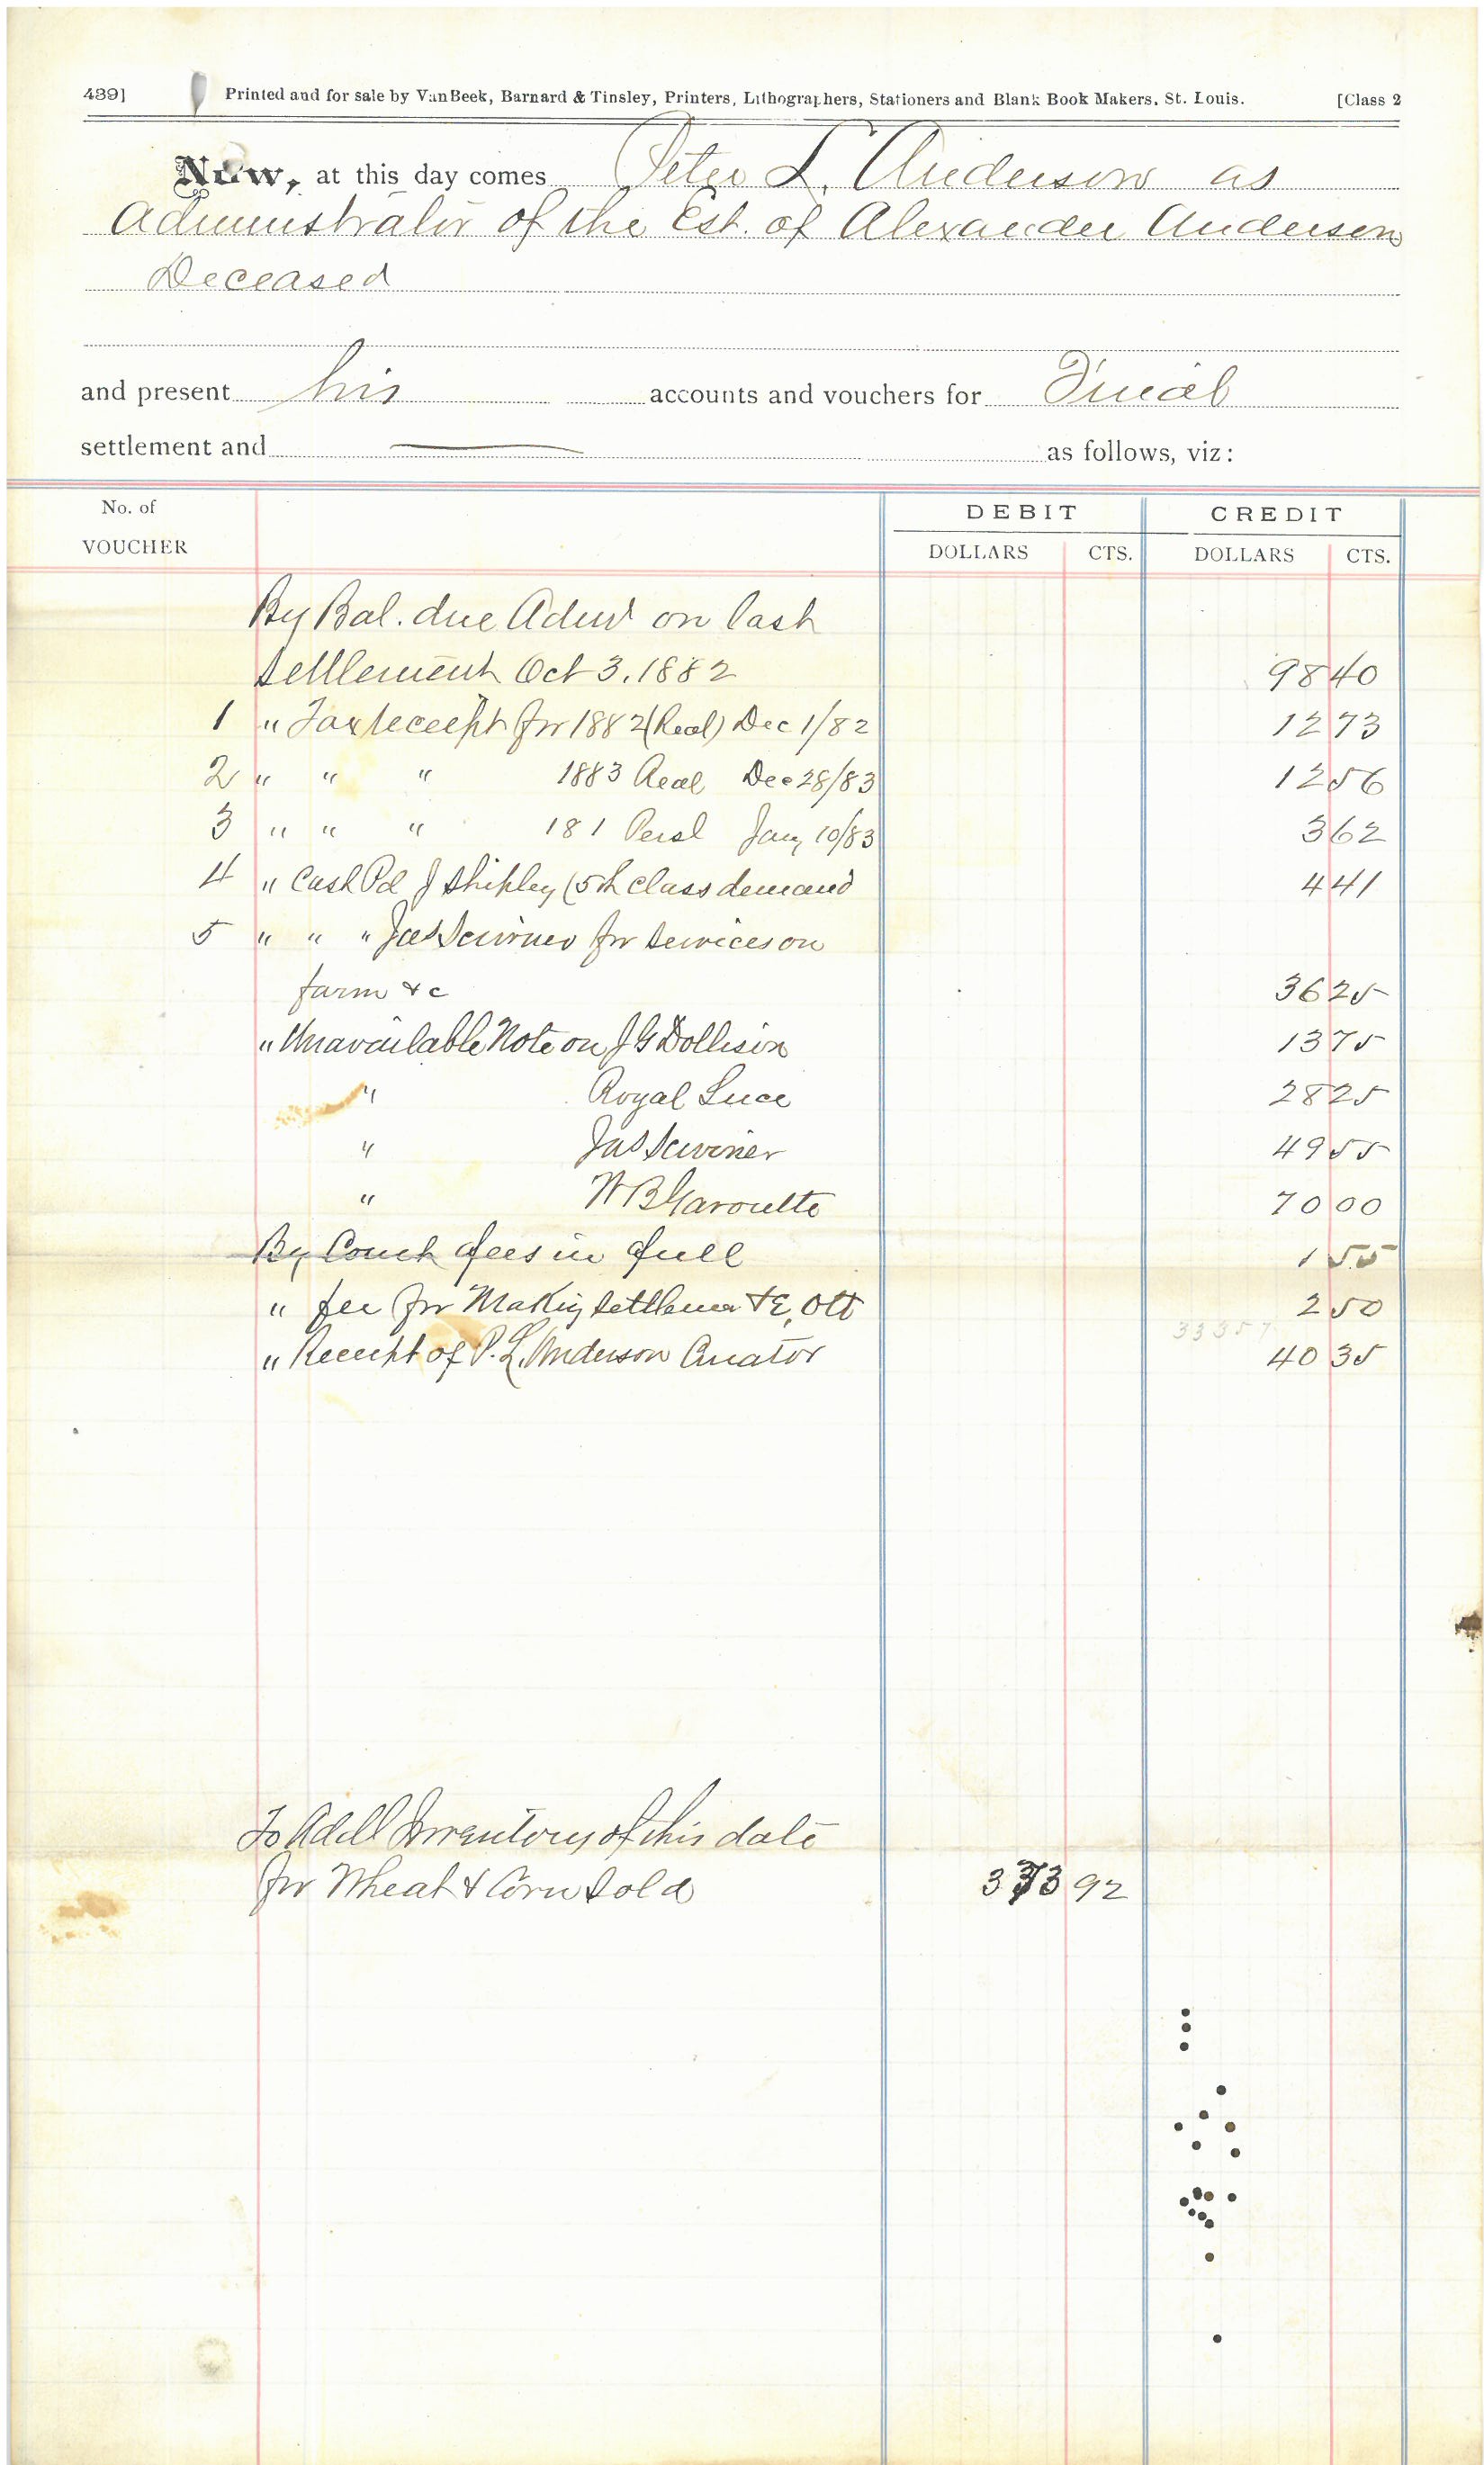 439] Printed and for sale by VanBeek, Barnard & Tinsley, Printers, Lithographers, Stationers and Blank Book Makers. St. Louis. [Class 2
Now, at this day comes Peter L. Anderson as
Administrator of the Est. of Alexander Anderson
Deceased
and present his accounts and vouchers for Final
settlement and as follows, viz:
No. of VOUCHER DEBIT CREDIT
DOLLARS CTS. DOLLARS CTS.
By Bal. due Admr on last
settlement Oct 3, 1882 98 40
1 " Tax receipt for 1882 (Real) Dec 1/82 12 73
2 " " " 1883 Real Dec 28/83 12 56
3 " " " 181 Persl Jany 10/83 3 62
4 " Cash Pd J Shipley (5th class demand 4 41
5 " " " Jas Scrivner for services on
farm &c 36 25
" Unavailable Note on J G Dollison 13 75
" Royal Luce 28 25
" Jas Scrivner 49 55
" W B Garoutte 70 00
By Court fees in full 1 55
" fee for Making settlement E, Ott 2 50
333 57
" Receipt of P. L. Anderson Curator 40 35
To Addl Inventory of this date
for Wheat & Corn sold 373 92